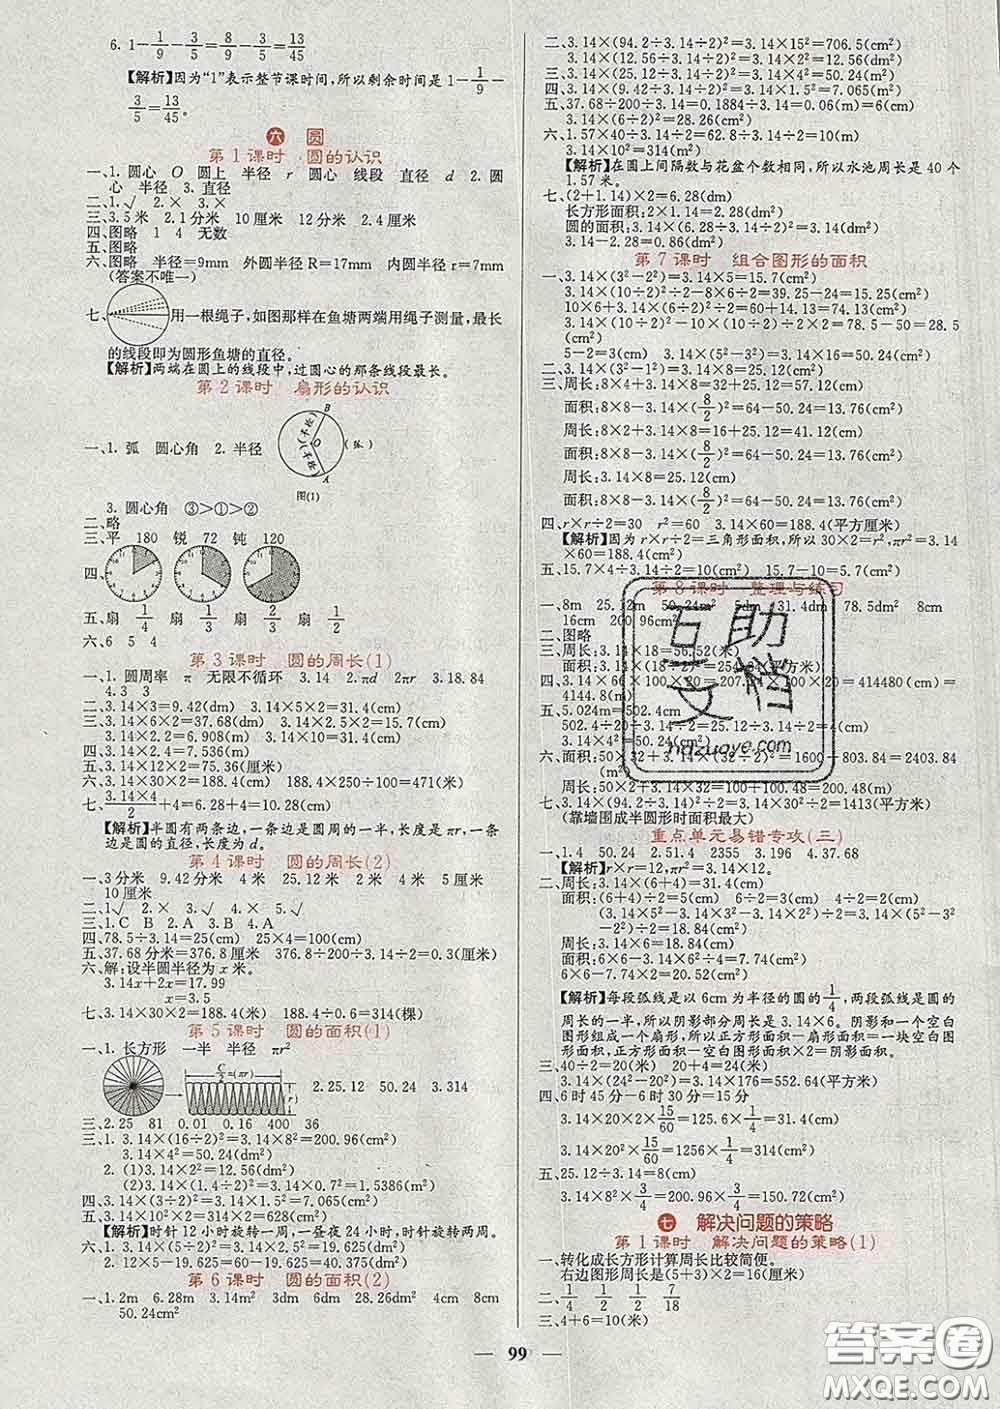 6. 1-1/9-3/5=8/9-3/5=13/45
【解析】因为“1”表示整节课时间,所以剩余时间是1-1/9-
3/5=13/45。
六 圆
第1课时 圆的认识
一、1. 圆心 O 圆上 半径 r 圆心 线段 直径 d 2. 圆
心 半径 3. 直径
二、1.√ 2.× 3.×
三、3.5米 2.1分米 10厘米 12分米 2.4厘米
四、图略 1 4 无数
五、图略
六、图略 半径=9mm 外圆半径R=17mm 内圆半径r=7mm
(答案不唯一)
七、用一根绳子,如图那样在鱼塘两端用绳子测量,最长
的线段即为圆形鱼塘的直径。
【解析】两端在圆上的线段中,过圆心的那条线段最长。
第2课时 扇形的认识
一、1. 弧 圆心角 2. 半径
B
O
A
(弧)
图(1)
3. 圆心角 ③>①>②
二、略
三、平 180 锐 72 钝 120
四、
五、扇 1/4 扇 1/3 扇 1/2 扇 2/3
六、6 5 4
第3课时 圆的周长(1)
一、1. 圆周率 π 无限不循环 3.14 2. πd 2πr 3. 18.84
4. 3 3
二、3.14×3=9.42(dm) 3.14×5×2=31.4(cm)
三、3.14×6×2=37.68(dm) 3.14×3=9.42(cm)
3.14×1.1×2=6.908(m) 3.14×10=31.4(cm)
四、3.14×2.4=7.536(m)
五、3.14×12×2=75.36(厘米)
六、3.14×30×2=188.4(cm) 188.4×250÷100=471(米)
七、3.14×4/2+4=6.28+4=10.28(cm)
【解析】半圆有两条边,一条边是圆周的一半,长度是πr,一条
边是圆的直径,长度为d。
第4课时 圆的周长(2)
一、3分米 9.42分米 4米 8米 25.12米 2米 4米 5厘米
10厘米
二、1.√ 2.× 3.√ 4.× 5.×
三、1. C B 2. A 3. B 4. A
四、78.5÷3.14=25(cm) 25×4=100(cm)
五、37.68分米=376.8厘米 376.8÷200÷3.14÷2=0.3(厘米)
六、解:设半圆半径为x米。
3.14x+2x=17.99
x=3.5
七、3.14×30×2=188.4(米) 188.4÷0.6=314(棵)
第5课时 圆的面积(1)
一、1. 长方形 一半 半径 πr²
C/2=(πr)
2. 25.12 50.24 3. 314
二、2.25 81 0.01 0.16 400 900
三、1. 3.14×(16÷2)²=3.14×8²=200.96(cm²)
3.14×4²=50.24(dm²)
2. (1)3.14×2²=12.56(dm²)
(2)3.14×(1.4÷2)²=3.14×0.7²=1.5386(m²)
四、3.14×(3÷2)²=3.14×1.5²=7.065(cm²)
五、3.14×10²×2=314×2=628(cm²)
【解析】时针12小时旋转一周,一昼夜24小时,时针旋转两周。
六、1. 3.14×(5÷2)²=3.14×2.5²=19.625(dm²)
2. 12×5-19.625=60-19.625=40.375(dm²)
第6课时 圆的面积(2)
一、1. 2m 6.28m 3.14m² 3dm 6dm 28.26dm² 4cm 8cm
50.24cm²
二、3.14×(94.2÷3.14÷2)²=3.14×15²=706.5(cm²)
3.14×(12.56÷3.14÷2)²=3.14×2²=12.56(dm²)
三、3.14×(25.12÷3.14÷2)²=3.14×4²=50.24(m²)
四、3.14×(9.42÷3.14÷2)²=3.14×1.5²=7.065(m²)
五、37.68÷200÷3.14=0.1884÷3.14=0.06(m)=6(cm)
3.14×(6÷2)²=28.26(cm²)
六、1.57×40÷3.14÷2=62.8÷3.14÷2=10(m)
3.14×10²=314(m²)
【解析】在圆上间隔数与花盆个数相同,所以水池周长是40个
1.57米。
七、(2+1.14)×2=6.28(dm)
长方形面积:2×1.14=2.28(dm²)
圆的面积:3.14×(6.28÷3.14÷2)²=3.14(dm²)
3.14-2.28=0.86(dm²)
第7课时 组合图形的面积
一、3.14×(3²-2²)=3.14×5=15.7(cm²)
3.14×(10²-6²)÷2=60+14.13=74.13(cm²)
二、3.14×(3²-1²)=3.14×8=25.12(m²)
三、周长:8×4+3.14×8=32+25.12=57.12(cm)
面积:8×8-3.14×(8/2)²=64-50.24=13.76(cm²)
周长:8×2+3.14×8=16+25.12=41.12(cm)
面积:8×8-3.14×(8/2)²=64-50.24=13.76(cm²)
周长:3.14×8=25.12(cm)
面积:8×8-3.14×(8/2)²=64-50.24=13.76(cm²)
四、r×r÷2=30 r²=60 3.14×60=188.4(平方厘米)
【解析】因为r×r÷2=三角形面积,所以30×2=r²,πr²=3.14×
60=188.4(cm²)。
五、15.7×4÷3.14÷2=10(cm) 15.7-10=5.7(cm)
第8课时 整理与练习
一、8m 25.12m 50.24m² 5dm 31.4dm 78.5dm² 8cm
16cm 200.96cm²
二、图略
三、周长:3.14×18=56.52(米)
面积:3.14×(18÷2)²=254.34(平方米)
五、5.024m=502.4cm
3.14×4²=50.24(cm²)
七、3.14×(94.2÷3.14)²÷2=3.14×30²÷2=1413(平方米)
(靠墙围成半圆形时面积最大)
重点单元易错专攻(三)
一、1. 4 50.24 2. 51.4 2355 3. 196 4. 37.68
【解析】r×r=12,πr²=3.14×12。
二、周长:3.14×(6+4)=31.4(cm)
面积:(6+4)÷2=5(cm) 6÷2=3(cm) 4÷2=2(cm)
(3.14×5²-3.14×3²-3.14×2²)÷2=3.14×(5²-3²
-2²)÷2=18.84(cm²)
周长:3.14×6=18.84(cm)
面积:6×6-3.14×6²÷4=7.74(cm²)
6×6-7.74×2=20.52(cm²)
【解析】每段弧线是以6cm为半径的圆的1/4,两段弧线是圆的
周长的一半,所以阴影部分周长是3.14×6。阴影和一个空白
图形组成一个扇形。所以正方形面积-扇形面积=一块空白图
形面积,正方形面积-空白图形面积×2=阴影面积。
三、40÷2=20(米) 20+4=24(米)
3.14×(24²-20²)=3.14×176=552.64(平方米)
四、6时45分-6时30分=15分
3.14×20×2×15/60=125.6×1/4=31.4(cm)
3.14×20²×15/60=1256×1/4=314(cm²)
五、25.12÷3.14=8(cm)
3.14×8²×3/4=200.96×3/4=150.72(cm²)
七 解决问题的策略
第1课时 解决问题的策略(1)
一、转化成长方形计算周长比较简便。
右边图形周长是(5+3)×2=16(厘米)
二、1/4 1/2 1/2 7/18
三、4+6=10(米)
99
互助文档
hdzuoye.com
答案圈
MXQE.COM